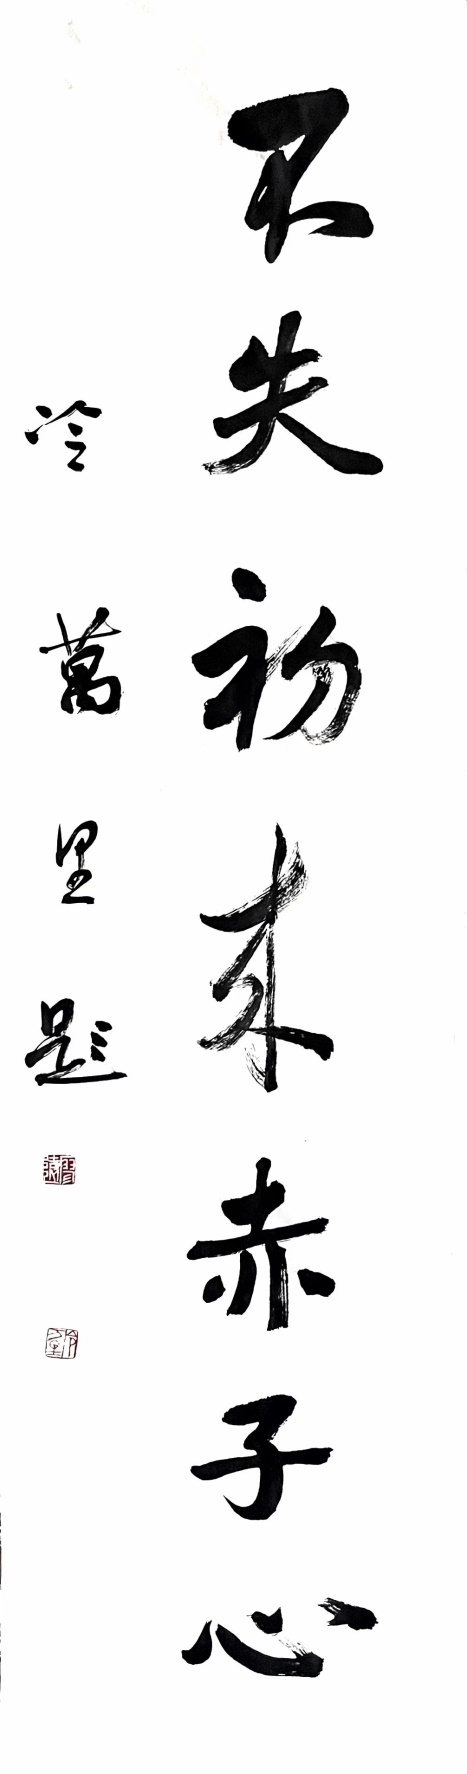 不失初来赤子心
冷萬里題